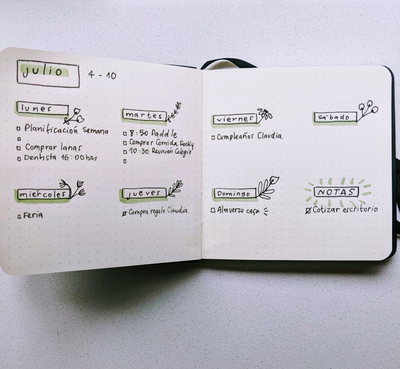 julio
4 - 10
lunes
Planificación Semana
Comprar lanas
Dentista 16:00 hrs
martes
8:50 Paddle
Comprar Comida Rocky
10:30 Reunión Colegio
miercoles
Feria
jueves
Compra regalo Claudia
viernes
Cumpleaños Claudia
sabado
Domingo
Almuerzo casa
NOTAS
Cotizar escritorio